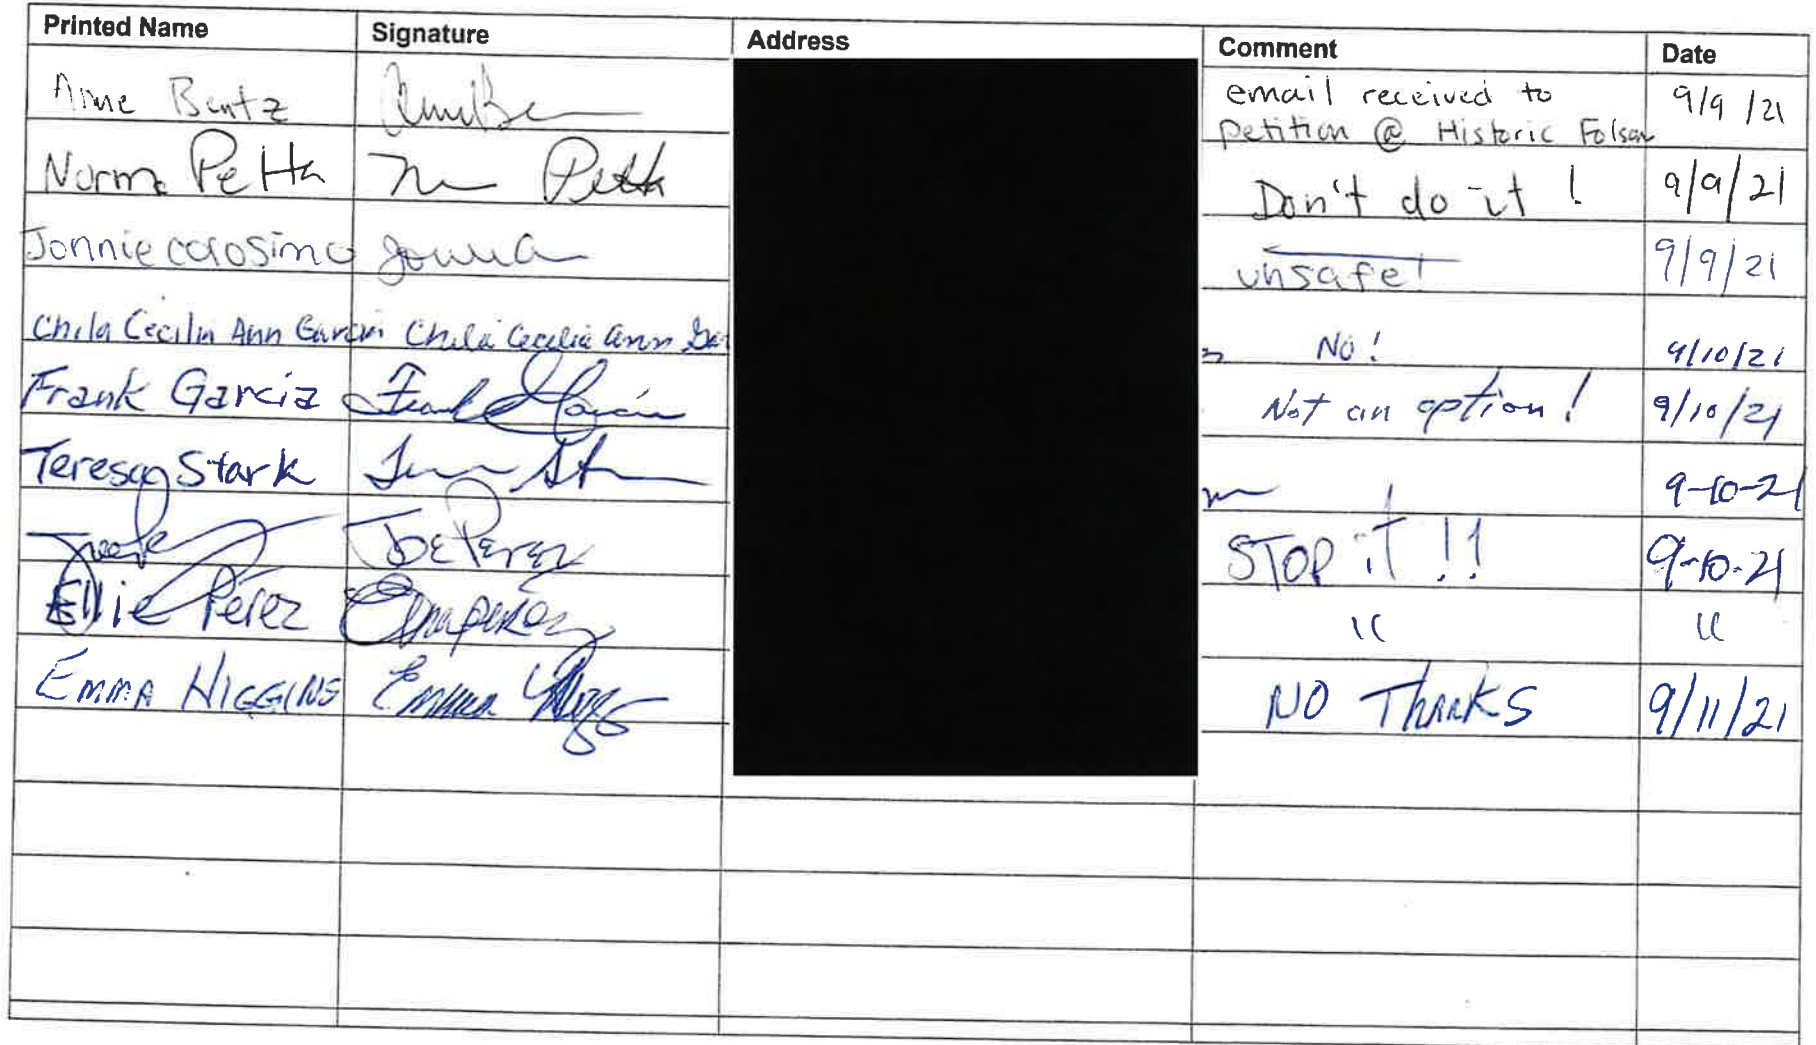 Printed Name Signature Address Comment Date
Anne Bentz email received to 9/9/21
petition @ Historic Folsom
Norma Petta Petta Don't do it! 9/9/21
Jonnie Colosimo unsafe! 9/9/21
Chila Cecilia Ann Garcia Chila Cecilia Ann No! 9/10/21
Frank Garcia Frank Garcia Not an option! 9/10/21
Teresa Stark 9-10-21
Joe Perez STOP it!! 9-10-21
Ellie Perez " "
EMMA HIGGINS Emma NO THANKS 9/11/21